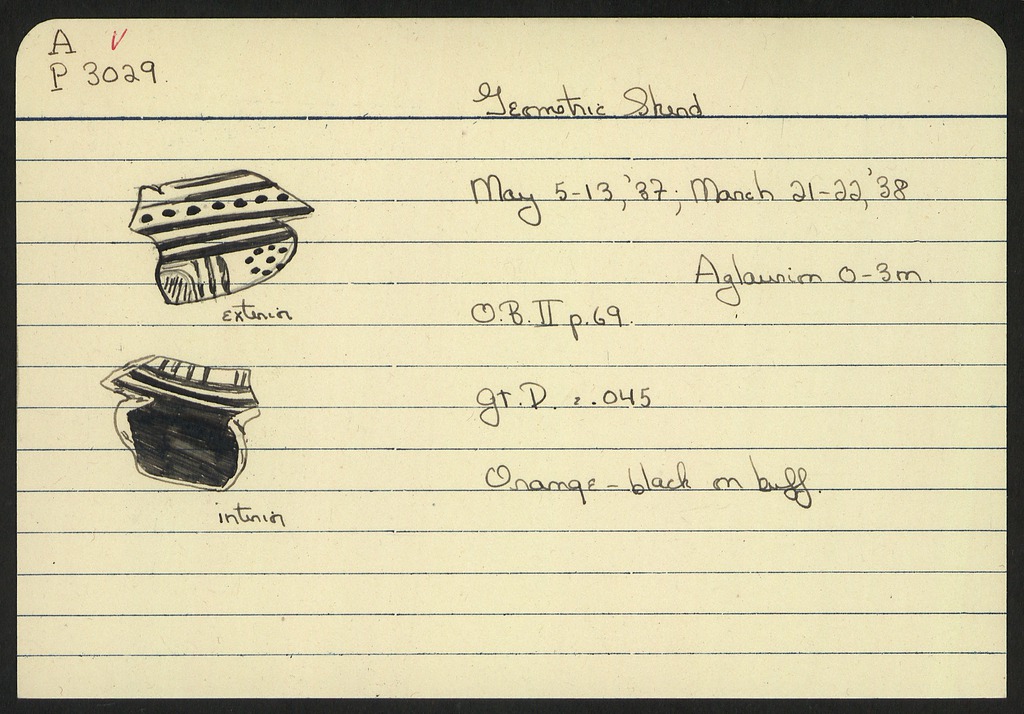 A
P 3029.
Geometric Sherd
May 5-13, '37; March 21-22, '38
Aglaurion 0-3m.
O.B. II p. 69.
exterior
gt. D. : .045
Orange-black on buff.
interior